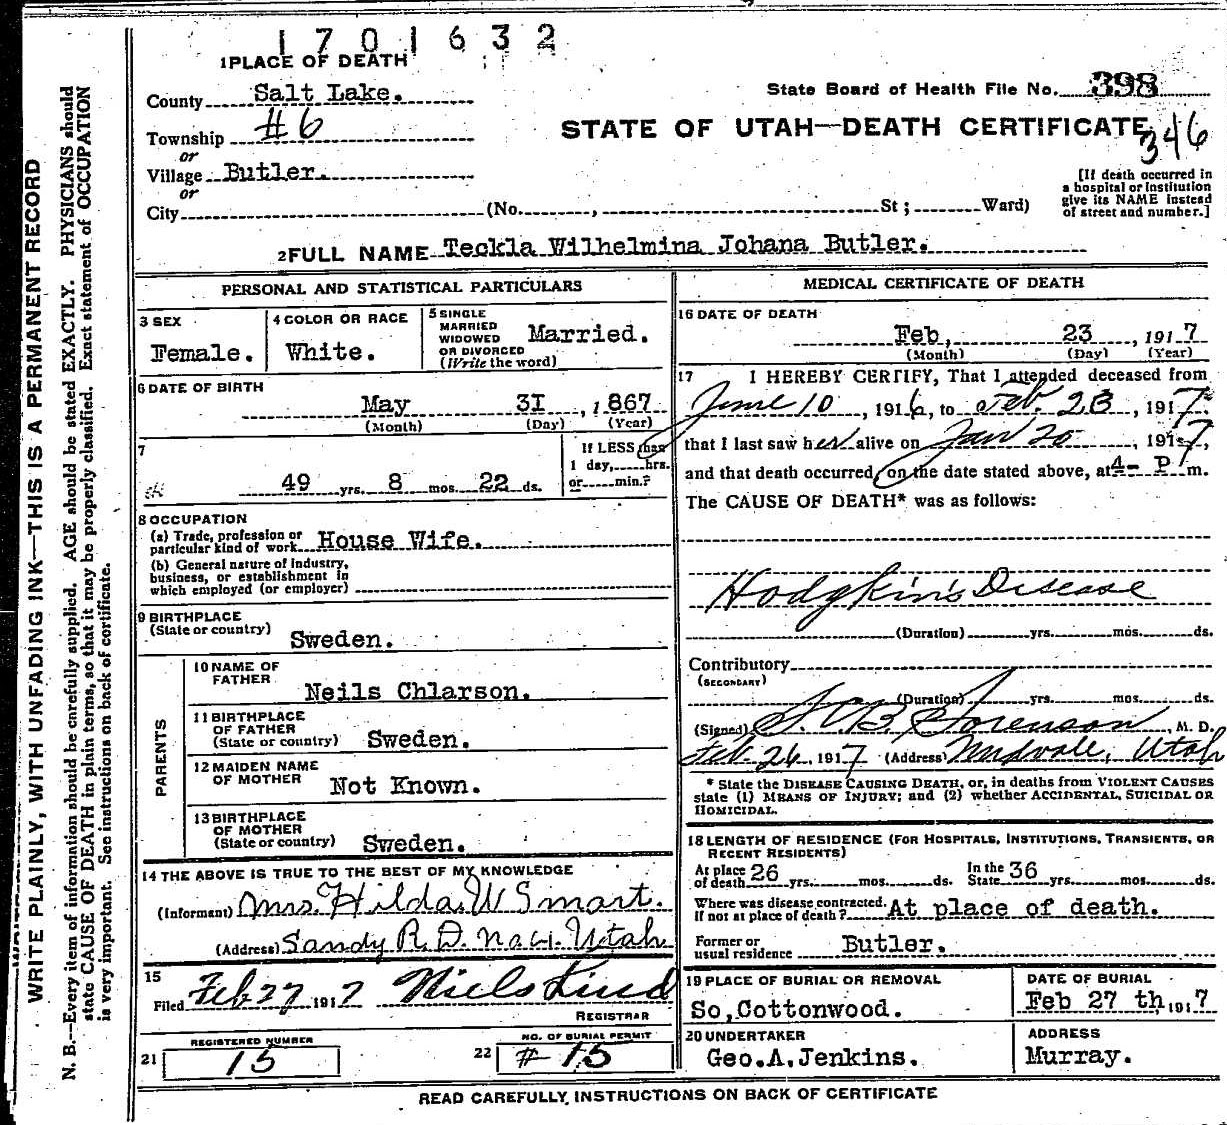 1701632
1 PLACE OF DEATH
County Salt Lake.
State Board of Health File No. 398
Township #6
STATE OF UTAH—DEATH CERTIFICATE
346
or
Village Butler.
or
City (No. , St ; Ward)
[If death occurred in
a hospital or institution
give its NAME instead
of street and number.]
2 FULL NAME Teckla Wilhelmina Johana Butler.
PERSONAL AND STATISTICAL PARTICULARS
3 SEX
Female.
4 COLOR OR RACE
White.
5 SINGLE
MARRIED
WIDOWED
OR DIVORCED
(Write the word)
Married.
6 DATE OF BIRTH
May 3I , 1867
(Month) (Day) (Year)
7
49 yrs. 8 mos. 22 ds.
If LESS than
1 day, hrs.
or min.?
8 OCCUPATION
(a) Trade, profession or
particular kind of work House Wife.
(b) General nature of industry,
business, or establishment in
which employed (or employer)
9 BIRTHPLACE
(State or country) Sweden.
PARENTS
10 NAME OF
FATHER
Neils Chlarson.
11 BIRTHPLACE
OF FATHER
(State or country) Sweden.
12 MAIDEN NAME
OF MOTHER Not Known.
13 BIRTHPLACE
OF MOTHER
(State or country) Sweden.
14 THE ABOVE IS TRUE TO THE BEST OF MY KNOWLEDGE
(Informant) Mrs. Hilda W Smart.
(Address) Sandy R.D. No. 1. Utah
15
Filed Feb 27 1917 Niels Lind
REGISTRAR
REGISTERED NUMBER
21 15
NO. OF BURIAL PERMIT
22 #15
MEDICAL CERTIFICATE OF DEATH
16 DATE OF DEATH
Feb, 23 , 1917
(Month) (Day) (Year)
17 I HEREBY CERTIFY, That I attended deceased from
June 10 , 1916, to Feb. 23 , 1917,
that I last saw her alive on Jan 20 , 1917,
and that death occurred, on the date stated above, at 4- P m.
The CAUSE OF DEATH* was as follows:
Hodgkin's Disease
(Duration) yrs. mos. ds.
Contributory
(SECONDARY)
(Duration) yrs. mos. ds.
(Signed) Sorenson , M. D.
Feb. 26, 1917 (Address) Midvale, Utah
* State the DISEASE CAUSING DEATH, or, in deaths from VIOLENT CAUSES
state (1) MEANS OF INJURY; and (2) whether ACCIDENTAL, SUICIDAL OR
HOMICIDAL.
18 LENGTH OF RESIDENCE (FOR HOSPITALS, INSTITUTIONS, TRANSIENTS, OR
RECENT RESIDENTS)
At place
of death 26 yrs. mos. ds. In the
State 36 yrs. mos. ds.
Where was disease contracted,
If not at place of death? At place of death.
Former or
usual residence Butler.
19 PLACE OF BURIAL OR REMOVAL
So, Cottonwood.
DATE OF BURIAL
Feb 27 th, 1917
20 UNDERTAKER
Geo.A.Jenkins.
ADDRESS
Murray.
READ CAREFULLY, INSTRUCTIONS ON BACK OF CERTIFICATE
WRITE PLAINLY, WITH UNFADING INK—THIS IS A PERMANENT RECORD
N. B.—Every item of information should be carefully supplied. AGE should be stated EXACTLY. PHYSICIANS should
state CAUSE OF DEATH in plain terms, so that it may be properly classified. Exact statement of OCCUPATION
is very important. See instructions on back of certificate.